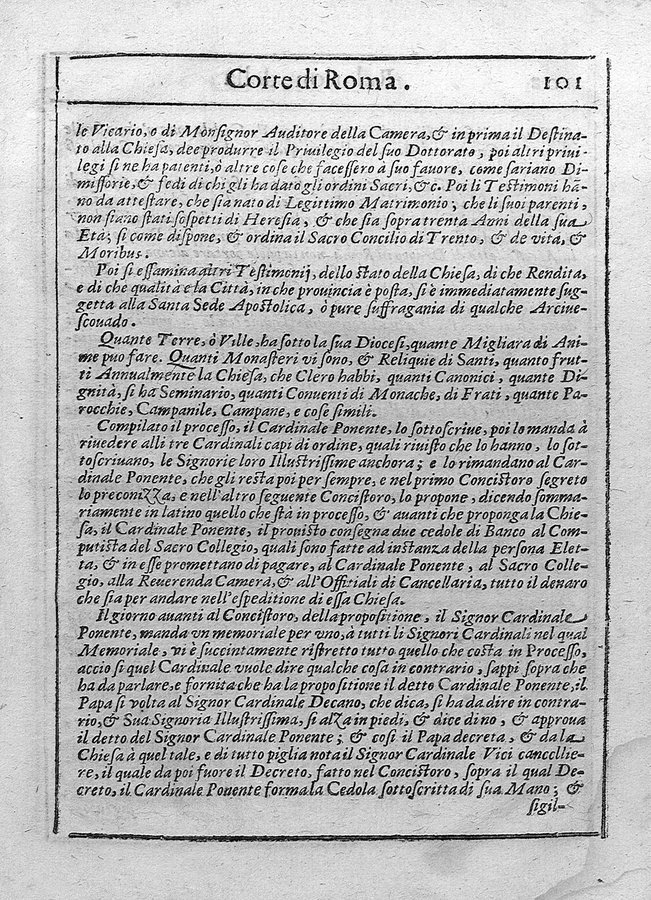 Corte di Roma. 101
le Vicario, o di Monsignor Auditore della Camera, & in prima il Destina-
to alla Chiesa, dee produrre il Priuilegio del suo Dottorato, poi altri priui-
legi si ne ha patenti, ò altre cose che facessero à suo fauore, come sariano Di-
missorie, & fedi di chi gli ha dato gli ordini Sacri, &c. Poi li Testimoni hã-
no da attestare, che sia nato di Legittimo Matrimonio; che li suoi parenti,
non siano stati sospetti di Heresia, & che sia sopra trenta Anni della sua
Età; si come dispone, & ordina il Sacro Concilio di Trento, & de vita, &
Moribus.
Poi si essamina altri Testimonij, dello stato della Chiesa, di che Rendita,
e di che qualità e la Città, in che prouincia è posta, si è immediatamente sug-
getta alla Santa Sede Apostolica, ò pure suffragania di qualche Arciue-
scouado.
Quante Terre, ò Ville, ha sotto la sua Diocesi, quante Migliara di Ani-
me puo fare. Quanti Monasteri vi sono, & Reliquie di Santi, quanto frut-
ti Annualmente la Chiesa, che Clero habbi, quanti Canonici, quante Di-
gnità, si ha Seminario, quanti Conuenti di Monache, di Frati, quante Pa-
rocchie, Campanile, Campane, e cose simili.
Compilato il processo, il Cardinale Ponente, lo sottoscriue, poi lo manda à
riuedere alli tre Cardinali capi di ordine, quali riuisto che lo hanno, lo sot-
toscriuano, le Signorie loro Illustrissime anchora; e lo rimandano al Car-
dinale Ponente, che gli resta poi per sempre, e nel primo Concistoro segreto
lo preconizza, e nell'altro seguente Concistoro, lo propone, dicendo somma-
riamente in latino quello che stà in processo, & auanti che proponga la Chie-
sa, il Cardinale Ponente, il prouisto consegna due cedole di Banco al Com-
putista del Sacro Collegio, quali sono fatte ad instanza della persona Elet-
ta, & in esse promettano di pagare, al Cardinale Ponente, al Sacro Colle-
gio, alla Reuerenda Camera, & all'Offitiali di Cancellaria, tutto il denaro
che sia per andare nell'espeditione di essa Chiesa.
Il giorno auanti al Concistoro, della propositione, il Signor Cardinale
Ponente, manda vn memoriale per vno, à tutti li Signori Cardinali nel qual
Memoriale, vi è succintamente ristretto tutto quello che costa in Processo,
accio si quel Cardinale vuole dire qualche cosa in contrario, sappi sopra che
ha da parlare, e fornita che ha la propositione il detto Cardinale Ponente, il
Papa si volta al Signor Cardinale Decano, che dica, si ha da dire in contra-
rio, & Sua Signoria Illustrissima, si alza in piedi, & dice di no, & approua
il detto del Signor Cardinale Ponente; & così il Papa decreta, & da la
Chiesa à quel tale, e di tutto piglia nota il Signor Cardinale Vici cancellie-
re, il quale da poi fuore il Decreto, fatto nel Concistoro, sopra il qual De-
creto, il Cardinale Ponente forma la Cedola sottoscritta di sua Mano; &
sigil-